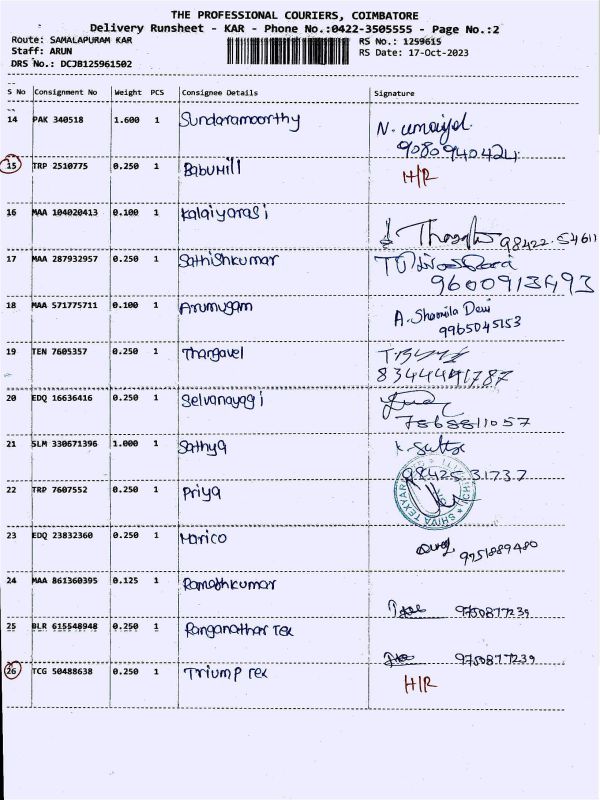 THE PROFESSIONAL COURIERS, COIMBATORE
Delivery Runsheet - KAR - Phone No.:0422-3505555 - Page No.:2
Route: SAMALAPURAM KAR
RS No.: 1259615
Staff: ARUN
RS Date: 17-Oct-2023
DRS No.: DCJB125961502
S No Consignment No Weight PCS Consignee Details Signature
14 PAK 340518 1.600 1 Sundaramoorthy
9080940424
15 TRP 2510775 0.250 1 Babumill H/R
16 MAA 104020413 0.100 1 Kalaiyarasi
98422 54611
17 MAA 287932957 0.250 1 Sathishkumar
9600913493
18 MAA 571775711 0.100 1 Arumugam A. Sharmila Devi
9965045153
19 TEN 7605357 0.250 1 Thangavel
8344441787
20 EDQ 16636416 0.250 1 Selvanayagi
7868811057
21 SLM 330671396 1.000 1 Sathya
98425 31737
22 TRP 7607552 0.250 1 Priya
23 EDQ 23832360 0.250 1 Marico 9751889480
24 MAA 861360395 0.125 1 Rameshkumar
9750877239
25 BLR 615548948 0.250 1 Ranganathar Tex
9750877239
26 TCG 50488638 0.250 1 Triump Tex H/R